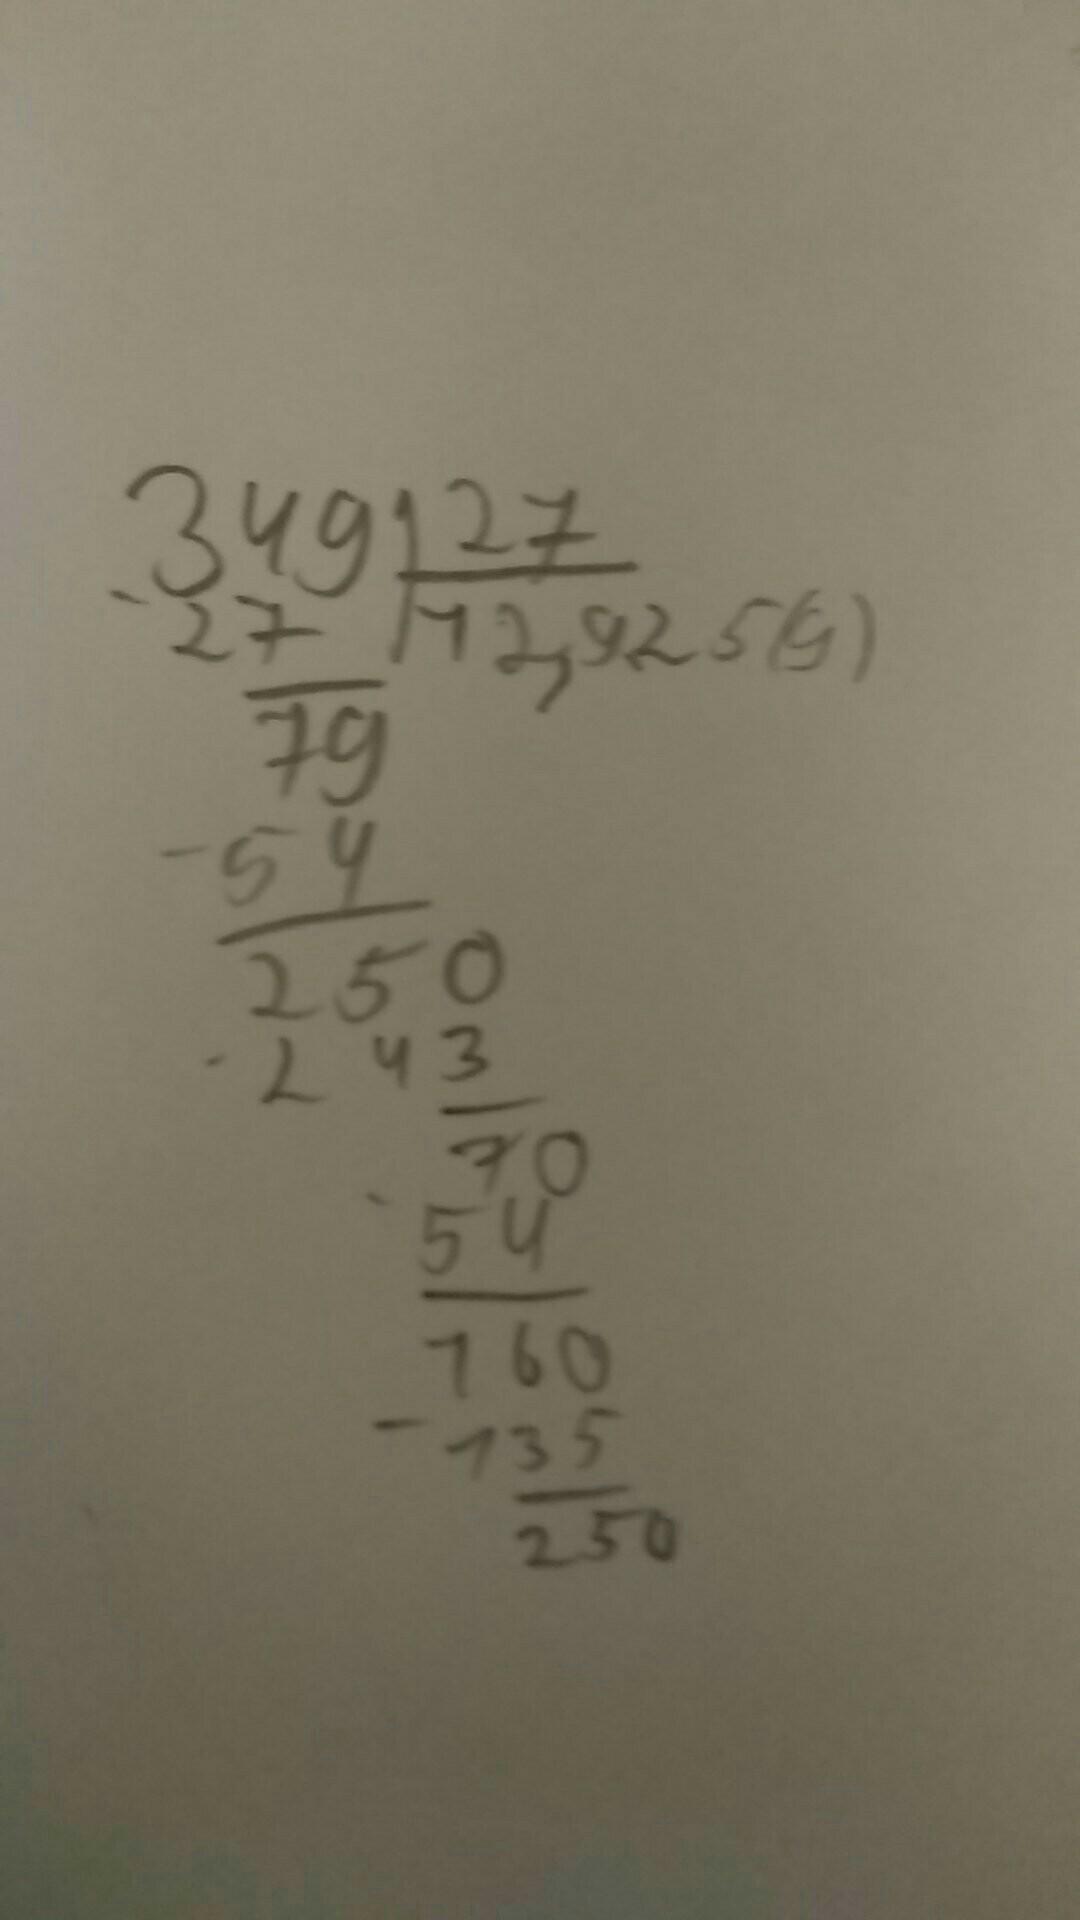 349 27
-27 12,925(9)
79
-54
250
-243
70
-54
160
-135
250